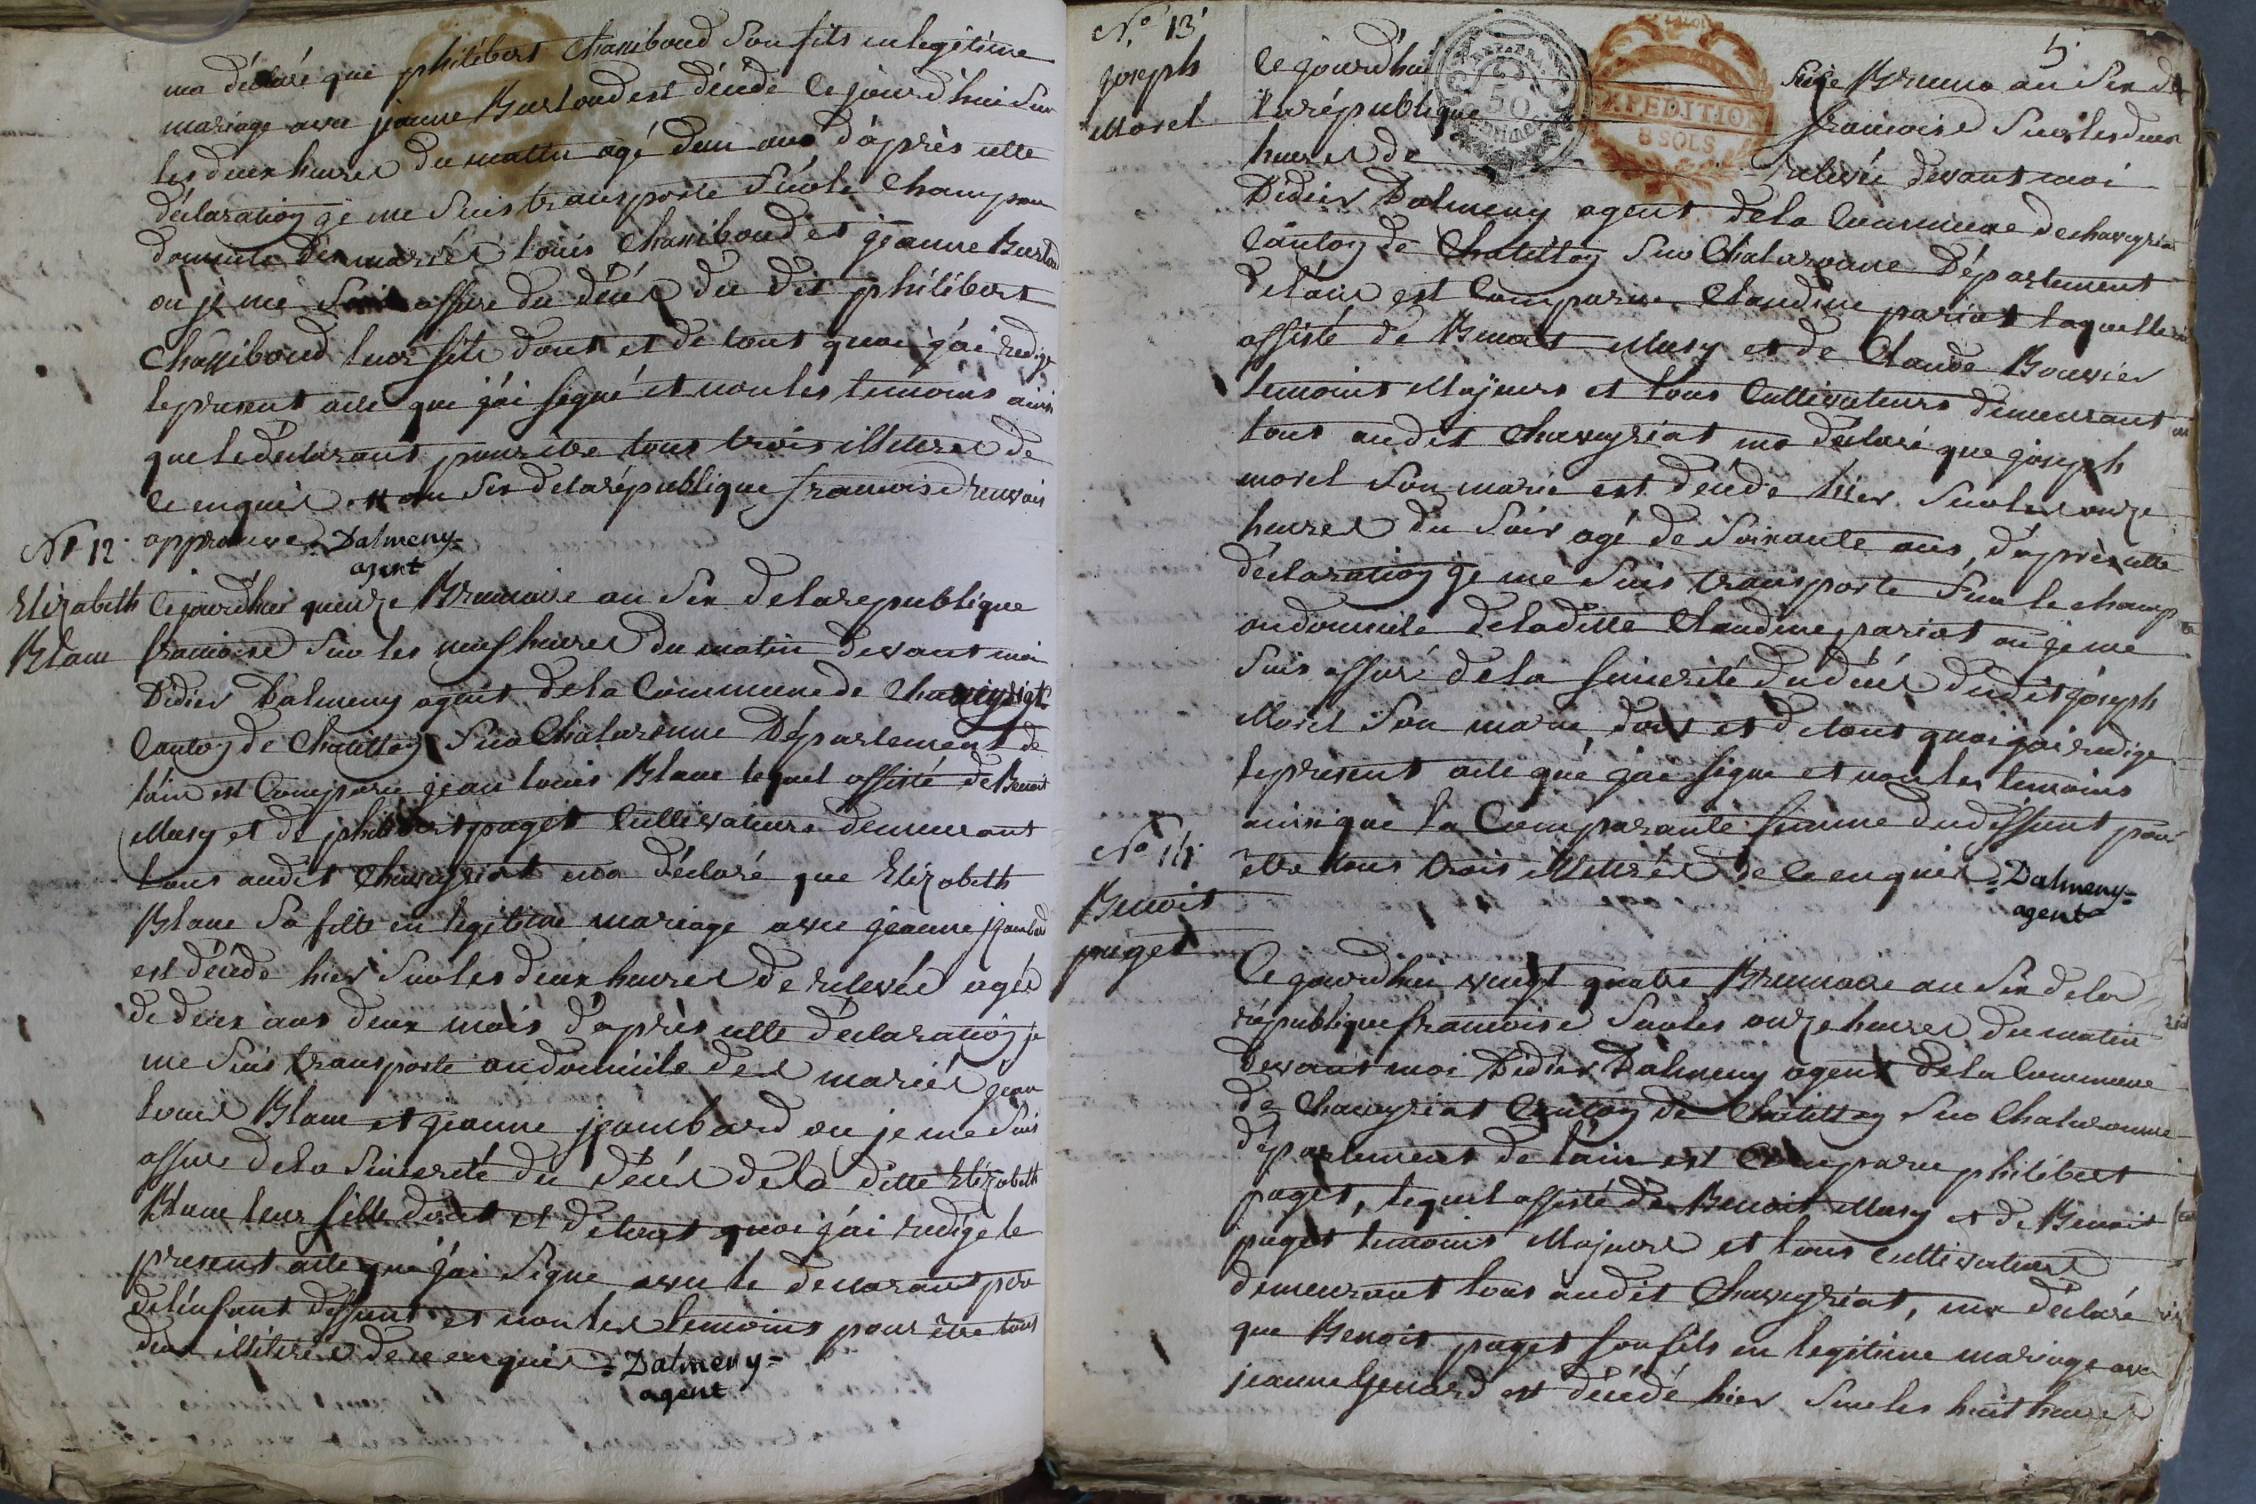 ma déclaré que philibert Chassiboud Son fils en legitime
mariage avec jeanne Burtoud est décédé Ce jourd'hui Sur
les deux heures du matin agé d'un ans d'après cette
déclaration je me Suis transporté Sur le Champ au
domicile des mariés Louis Chassiboud et jeanne Burtoud
ou je me Suis assuré du décés du dit philibert
Chassiboud leur fils dont et de tout quoi j'ai redigé
le present acte que j'ai signé et non les temoins ainsi
que le déclarant pour être tous trois illiterés de
ce enquis an Six de la république francoise
approuve Dalmeny
agent
N° 12
Elizabeth
Blanc
Ce jourd'hui quinze Brumaire an Six de la republique
francoise Sur les neuf heures du matin devant moi
Didier Dalmeny agent de la Commune de Chaveyriat
Canton de Chatillon Sur Chalaronne Département de
l'ain est Comparu jean louis Blanc lequel assisté de Benoit
Mury et de philibert puget Cultivateurs demeurant
tous audit Chaveyriat ma déclaré que Elizabeth
Blanc Sa fille en legitime mariage avec jeanne jambard
est décédé hier Sur les deux heures de relevée agée
de deux ans deux mois d'après cette déclaration je
me Suis transporté au domicile des mariés jean
louis Blanc et jeanne jambard ou je me Suis
assuré de la Sincerité du décés de la ditte Elizabeth
Blanc leur fille dont et de tout quoi j'ai redigé le
present acte que j'ai Signé avec le déclarant pere
de l'enfant deffunt et non les temoins pour être tous
deux illiterés de ce enquis Dalmeny
agent
5
N° 13
joseph
Morel
Ce jourd'hui Seize Brumaire an Six de
la république francoise Sur les deux
heures de relevée devant moi
50
EXPEDITION
8 SOLS
Didier Dalmeny agent de la Commune de chaveyriat
Canton de Chatillon Sur Chalaronne Département
de l'ain est Comparue Claudine pariat laquelle
assisté de Benoit Mury et de Claude Bouvier
temoins Majeurs et tous Cultivateurs demeurant
tous audit Chaveyriat ma déclaré que joseph
morel Son marie est décédé hier Sur les onze
heures du Soir agé de Soixante ans, d'après cette
déclaration je me Suis transporté Sur le champ
au domicile de la ditte Claudine pariat ou je me
Suis assuré de la Sincerité du décés du dit joseph
Morel Son marie, dont et de tout quoi j'ai redigé
le present acte que j'ai signé et non les temoins
ainsi que la Comparante femme du deffunt pour
être tous trois illiterés de ce enquis Dalmeny
agent
N° 14
Benoit
puget
Ce jourd'hui vingt quatre Brumaire an Six de la
république francoise Sur les onze heures du matin
devant moi Didier Dalmeny agent de la Commune
de Chaveyriat Canton de Chatillon Sur Chalaronne
département de l'ain est Comparu philibert
puget, lequel assisté de Benoit Mury et de Benoit
puget temoins Majeurs et tous cultivateurs
demeurant tous audit Chaveyriat, ma déclaré
que Benoit puget Son fils en legitime mariage avec
jeanne Genard est décédé hier Sur les huit heures